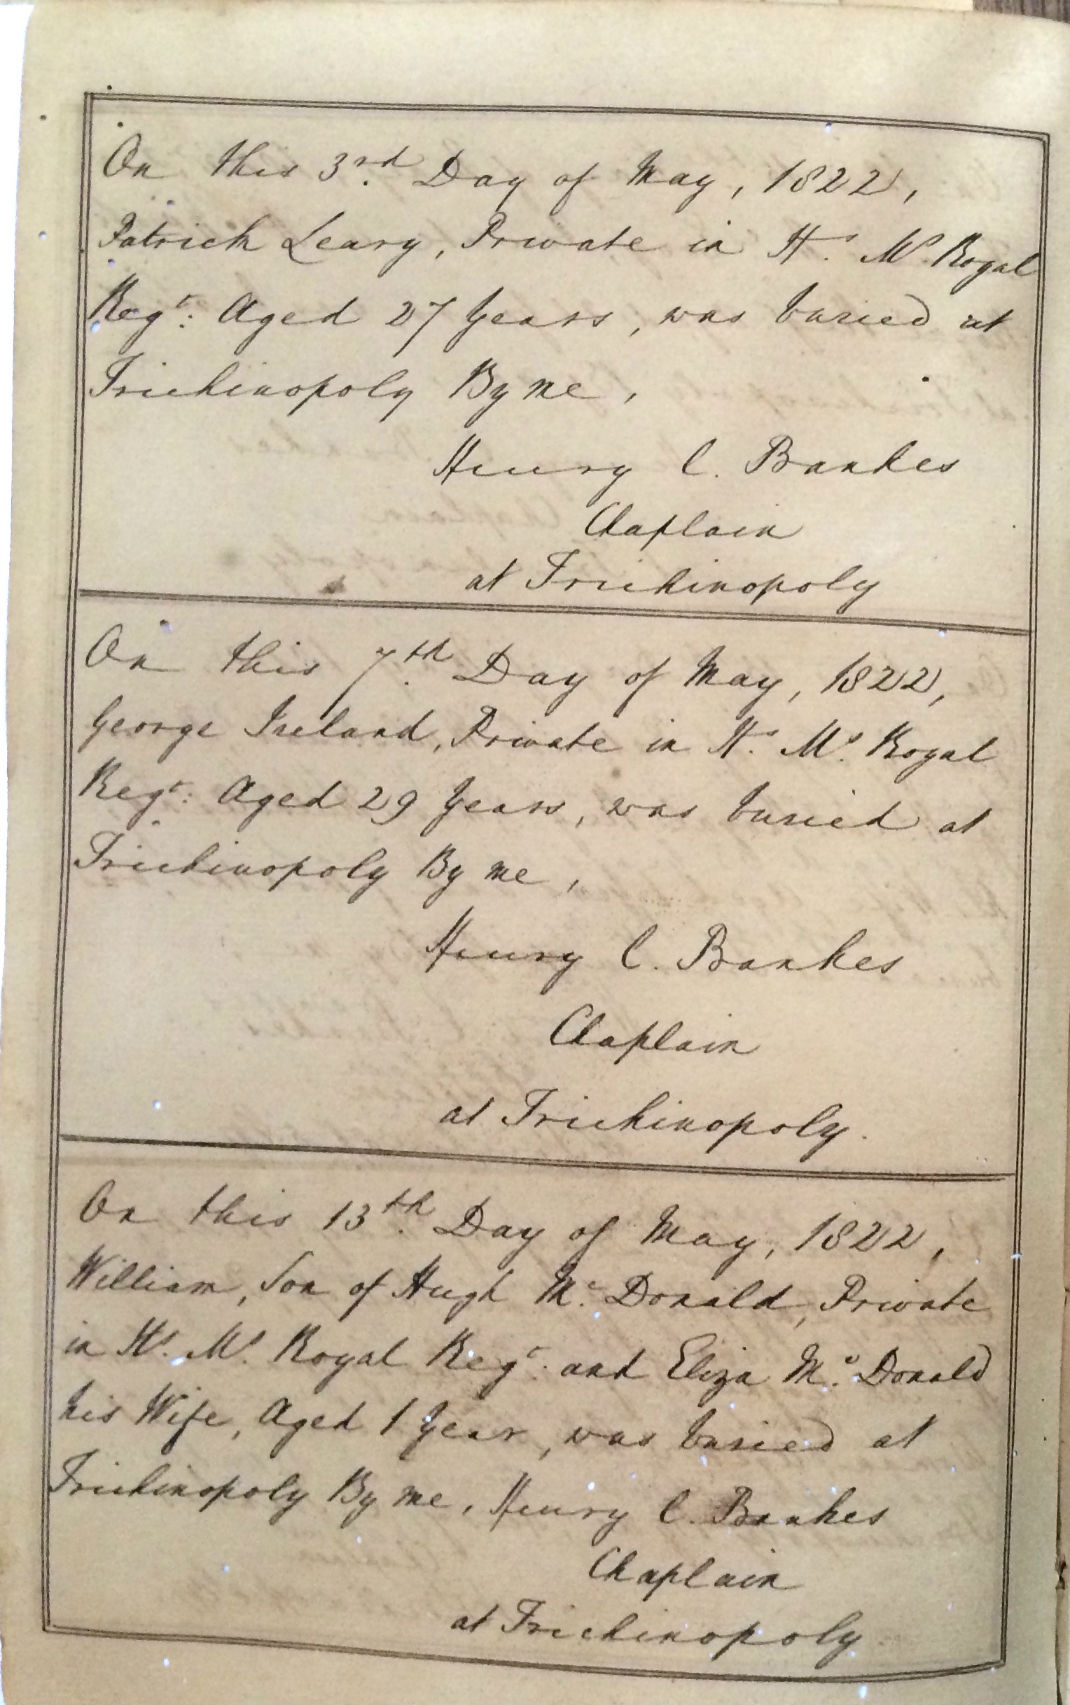 On this 3rd Day of May, 1822,
Patrick Leary, Private in Hs. Ms. Royal
Regt: Aged 27 Years, was buried at
Trichinopoly By me,
Henry C. Bankes
Chaplain
at Trichinopoly
On this 7th Day of May, 1822,
George Ireland, Private in Hs. Ms. Royal
Regt: Aged 29 Years, was buried at
Trichinopoly By me,
Henry C. Bankes
Chaplain
at Trichinopoly.
On this 13th Day of May, 1822,
William, Son of Hugh Mc. Donald, Private
in Hs. Ms. Royal Regt: and Eliza Mc. Donald
his Wife, Aged 1 Year, was buried at
Trichinopoly By me, Henry C. Bankes
Chaplain
at Trichinopoly